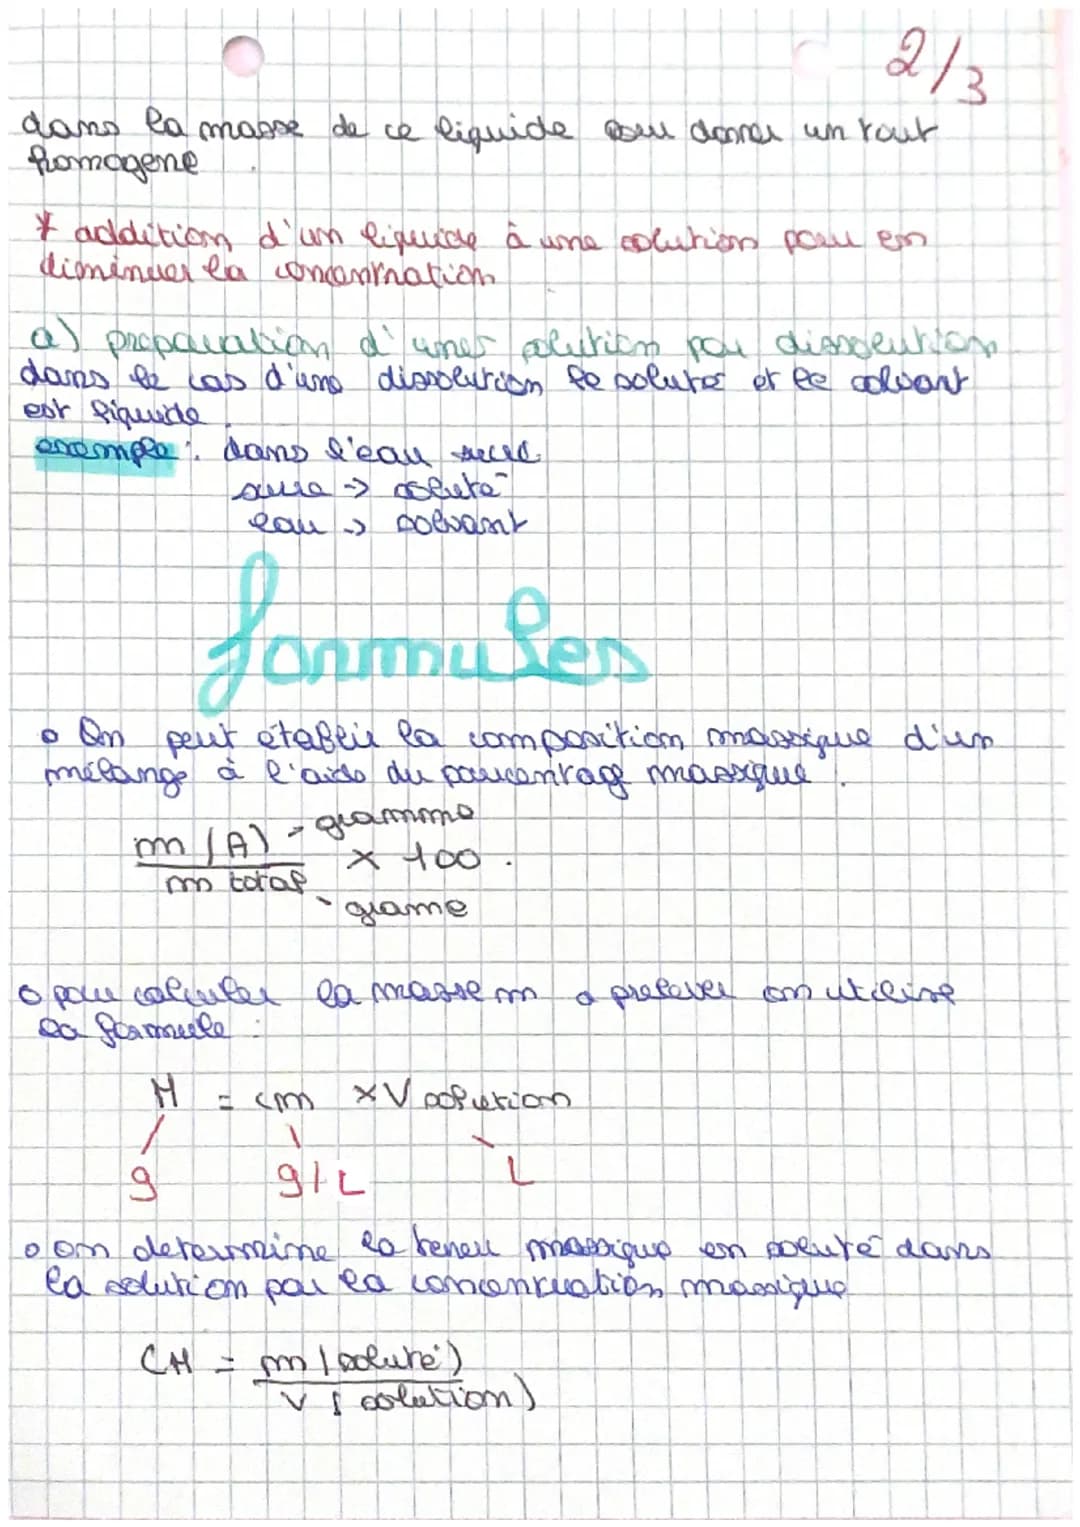 2/3
dans la masse de ce liquide pour donner un tout
homogene.
* addition d'un liquide à une solution pour en
diminuer la concentration
a) preparation d'unes solution par dissolution
dans le cas d'une dissolution le solutes et le solvant
est liquide.
exemple : dans l'eau sucré.
sucre -> soluté
eau -> solvant
formules
• On peut établir la composition massique d'un
mélange à l'aide du pourcentage massique.
m (A) - gramme
m total × 100.
- grame
o pour calculer la masse m a prelever on utilise
la formule :
M = cm × V solution
g g/L L
o on determine la teneur massique en soluté dans
la solution par la concentration massique
CM = m (soluté)
V (solution)